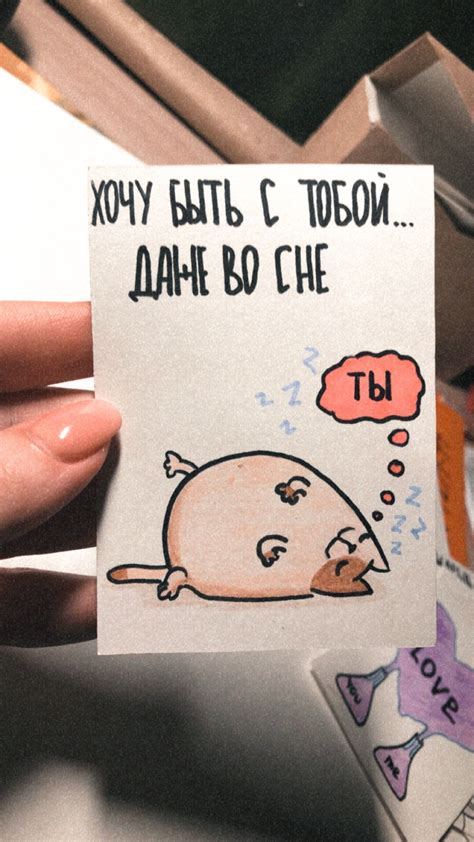 ХОЧУ БЫТЬ С ТОБОЙ...
ДАЖЕ ВО СНЕ
z
z z
z
ТЫ
z
z z
z
LOVE
YOU
ME